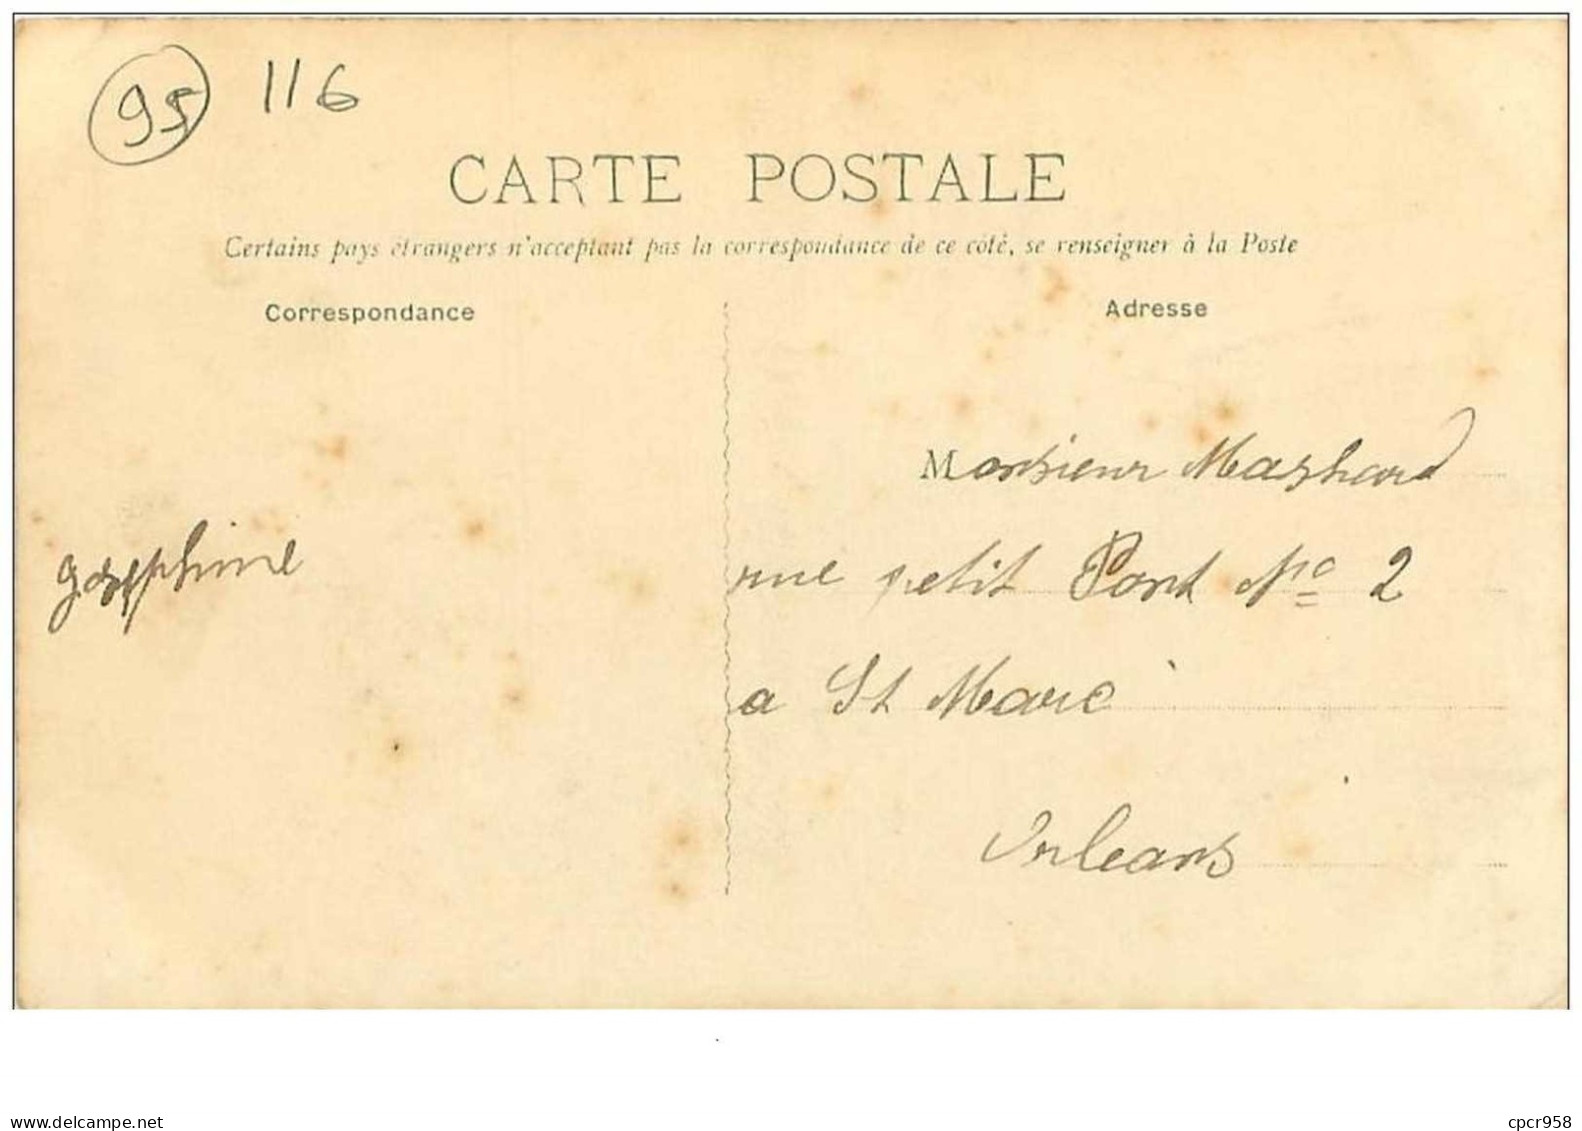 95 116
CARTE POSTALE
Certains pays étrangers n'acceptant pas la correspondance de ce côté, se renseigner à la Poste
Correspondance
Adresse
Monsieur
Josephine
rue petit Pont No 2
a St Marc
Orleans
www.delcampe.net
cpcr958